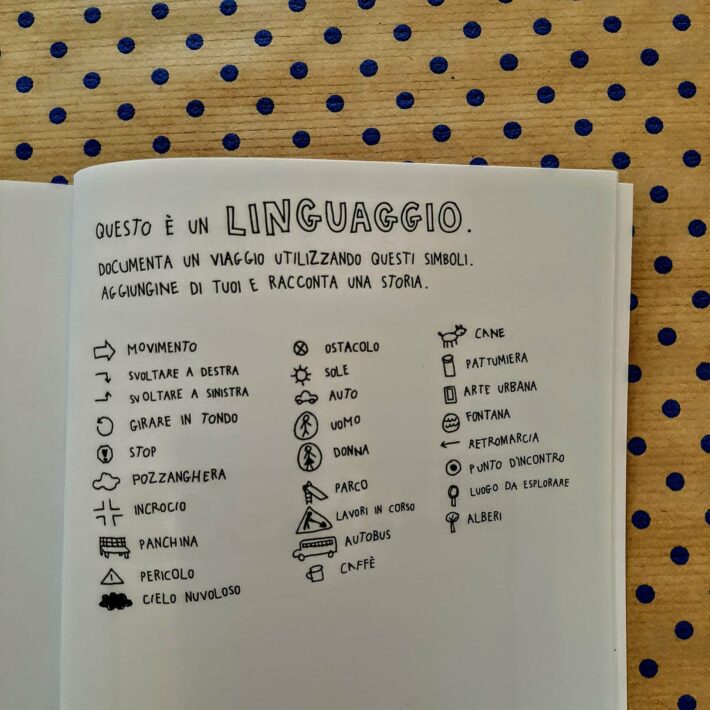 QUESTO È UN LINGUAGGIO.
DOCUMENTA UN VIAGGIO UTILIZZANDO QUESTI SIMBOLI.
AGGIUNGINE DI TUOI E RACCONTA UNA STORIA.
MOVIMENTO
SVOLTARE A DESTRA
SVOLTARE A SINISTRA
GIRARE IN TONDO
STOP
POZZANGHERA
INCROCIO
PANCHINA
PERICOLO
CIELO NUVOLOSO
OSTACOLO
SOLE
AUTO
UOMO
DONNA
PARCO
LAVORI IN CORSO
AUTOBUS
CAFFÈ
CANE
PATTUMIERA
ARTE URBANA
FONTANA
RETROMARCIA
PUNTO D'INCONTRO
LUOGO DA ESPLORARE
ALBERI